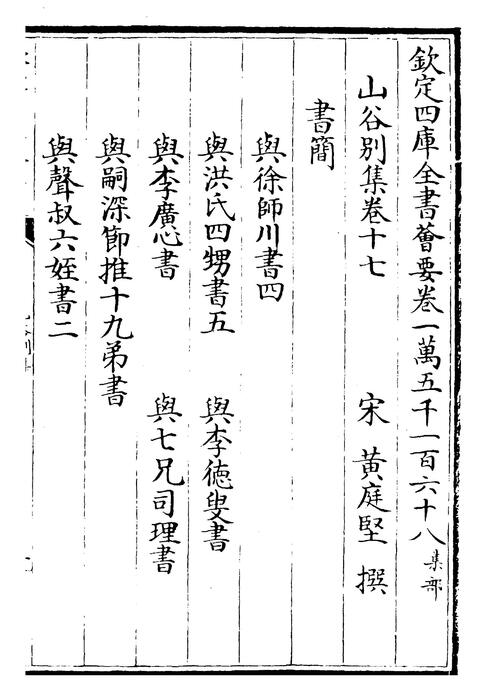 欽定四庫全書薈要卷一萬五千一百六十八集部
山谷别集卷十七 宋 黄庭堅 撰
書簡
與徐師川書四
與洪氏四甥書五 與李徳叟書
與李廣心書 與七兄司理書
與嗣深節推十九弟書
與聲叔六姪書二